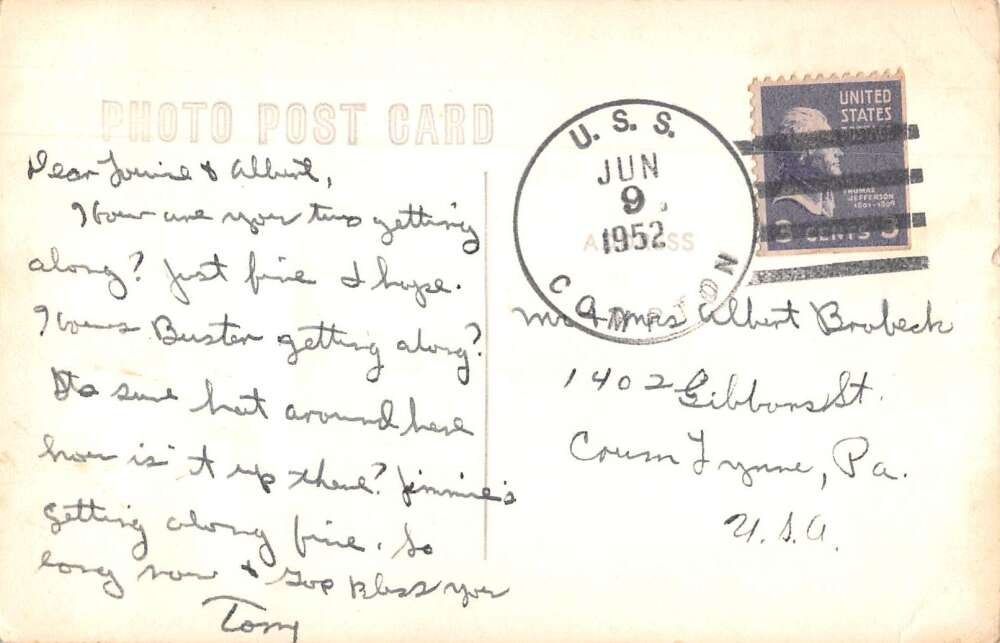 PHOTO POST CARD
Dear & Albert,
How are you two getting
along? Just fine I hope.
Hows Buster getting along?
Its sure hot around here
how is it up there? Jimmie's
getting along fine. So
long now & God Bless you
Tony
U.S.S.
JUN
9
1952
COMPTON
ADDRESS
UNITED
STATES
THOMAS
JEFFERSON
1801-1809
3 CENTS 3
Mr & Mrs Albert Brobeck
1402 Gibbons St.
Crum Lynne, Pa.
U.S.A.